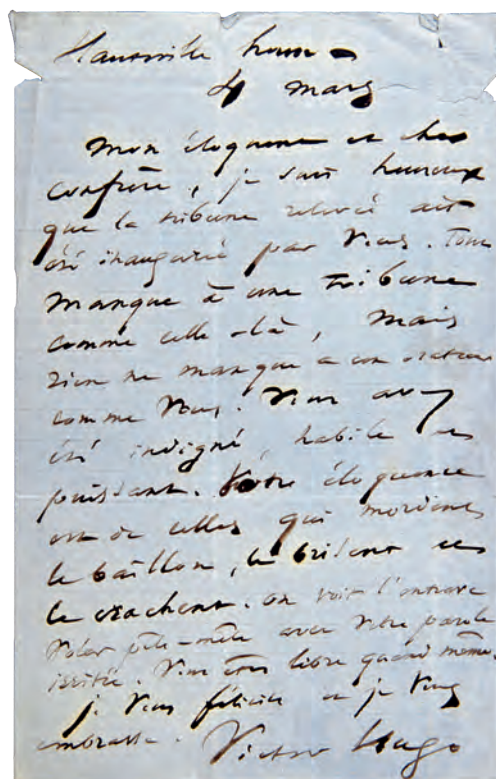 Hauteville house –
4 mars
Mon éloquent et cher
confrère, je suis heureux
que la tribune relevée ait
été inaugurée par vous. Tout
manque à une tribune
comme celle-là, mais
rien ne manque à un orateur
comme vous. Vous avez
été indigné, habile et
puissant. Votre éloquence
est de celles qui mordent
le baillon, le brisent et
le crachent. On voit l'entrave
voler pêle-mêle avec votre parole
irritée. Vous êtes libre quand même.
je vous félicite et je vous
embrasse. Victor Hugo